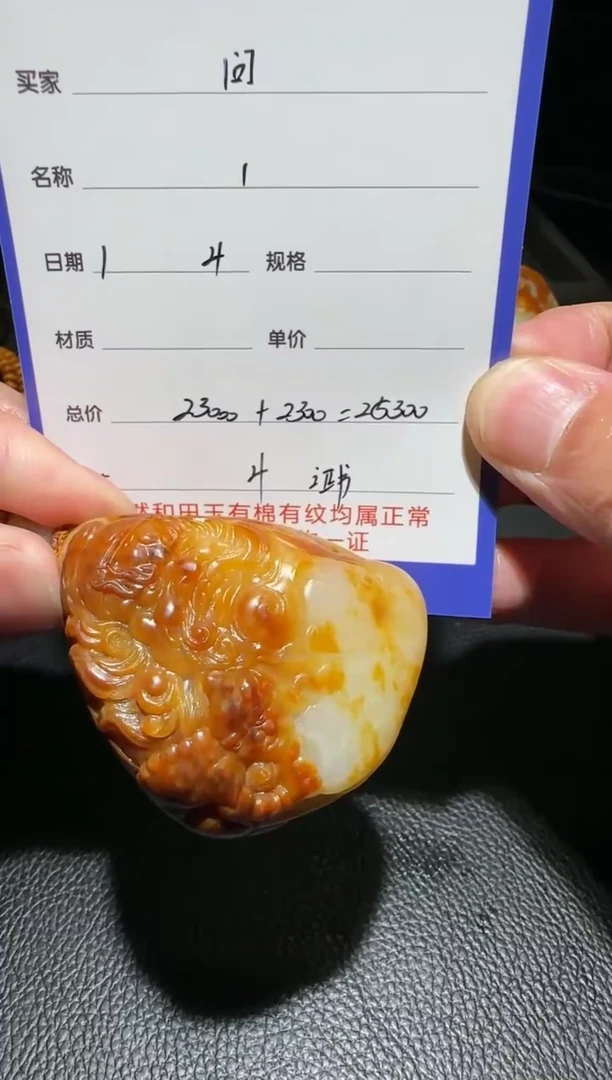 买家 问
名称 1
日期 1 4 规格
材质 单价
总价 23000 + 2300 = 25300
4 证书
然和田玉有棉有纹均属正常
一证